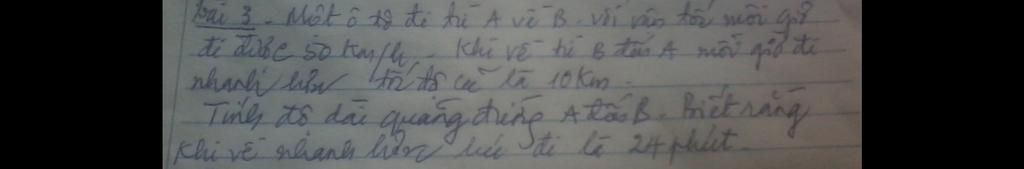 Bài 3. Một ô tô đi từ A về B. với vận tốc mỗi giờ
đi được 50 Km/h. Khi về từ B đến A mỗi giờ đi
nhanh hơn tốc độ cũ là 10Km.
Tính độ dài quãng đường A đến B. Biết rằng
Khi về nhanh hơn lúc đi là 24 phút.